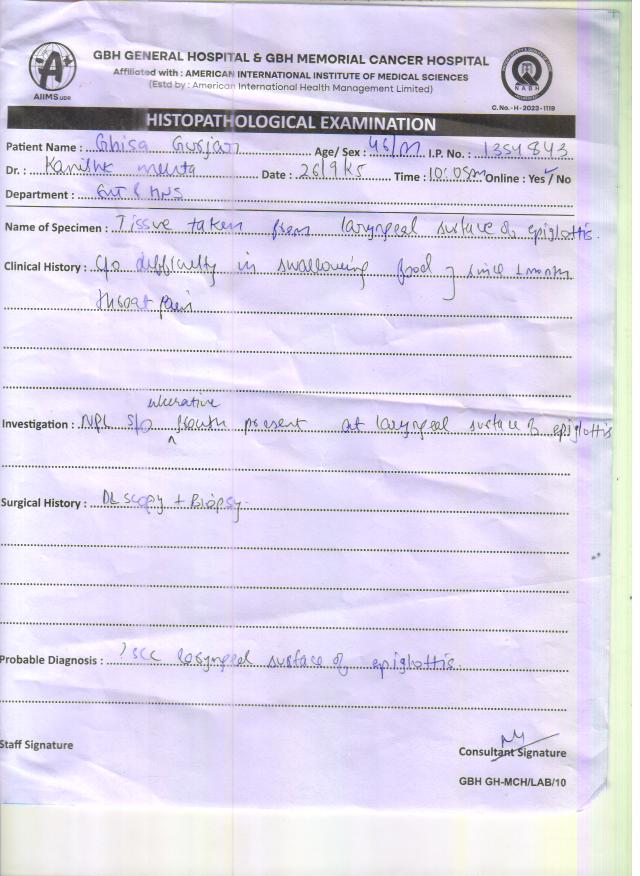 GBH GENERAL HOSPITAL & GBH MEMORIAL CANCER HOSPITAL
Affiliated with : AMERICAN INTERNATIONAL INSTITUTE OF MEDICAL SCIENCES
(Estd by : American International Health Management Limited)
AIIMS UDR
NABH
C.No.- H - 2023 - 1119
HISTOPATHOLOGICAL EXAMINATION
Patient Name : Ghisa Gurjar Age/ Sex : 46/M I.P. No. : 1354843
Dr. : Kanishk Mehta Date : 26/9/25 Time : 10:05am Online : Yes / No
Department : ENT & HNS
Name of Specimen : Tissue taken from laryngeal surface of epiglottis.
Clinical History : C/o difficulty in swallowing food } since 1 month
throat pain
ulcerative
Investigation : NPL S/o growth present at laryngeal surface of epiglottis
Surgical History : DL scopy + Biopsy.
Probable Diagnosis : ? SCC laryngeal surface of epiglottis
Staff Signature
Consultant Signature
GBH GH-MCH/LAB/10